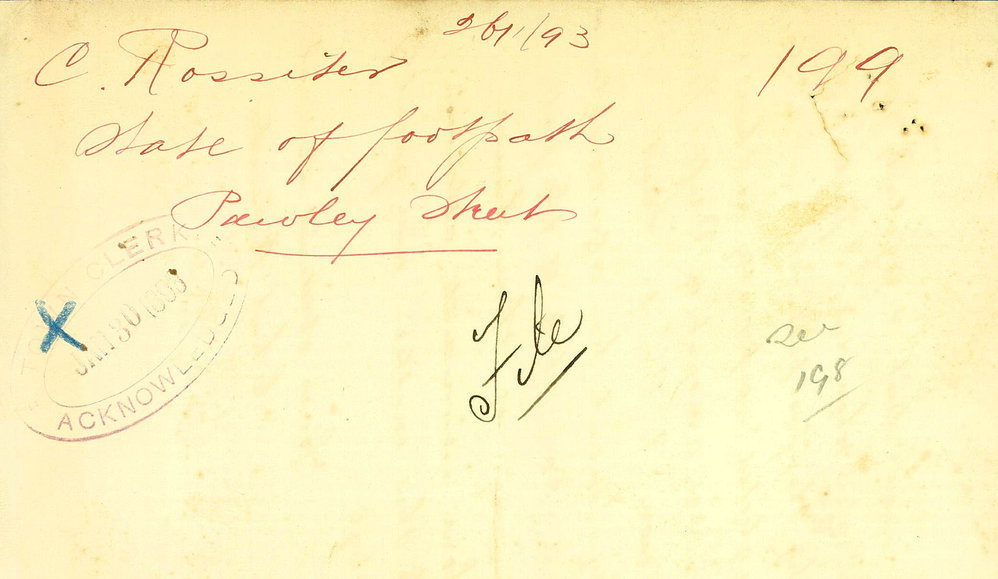 26/1/93
C. Rossiter
199
State of footpath
Pawley Street
TOWN CLERK
JAN 30 1893
ACKNOWLEDGED
X
File
see
198